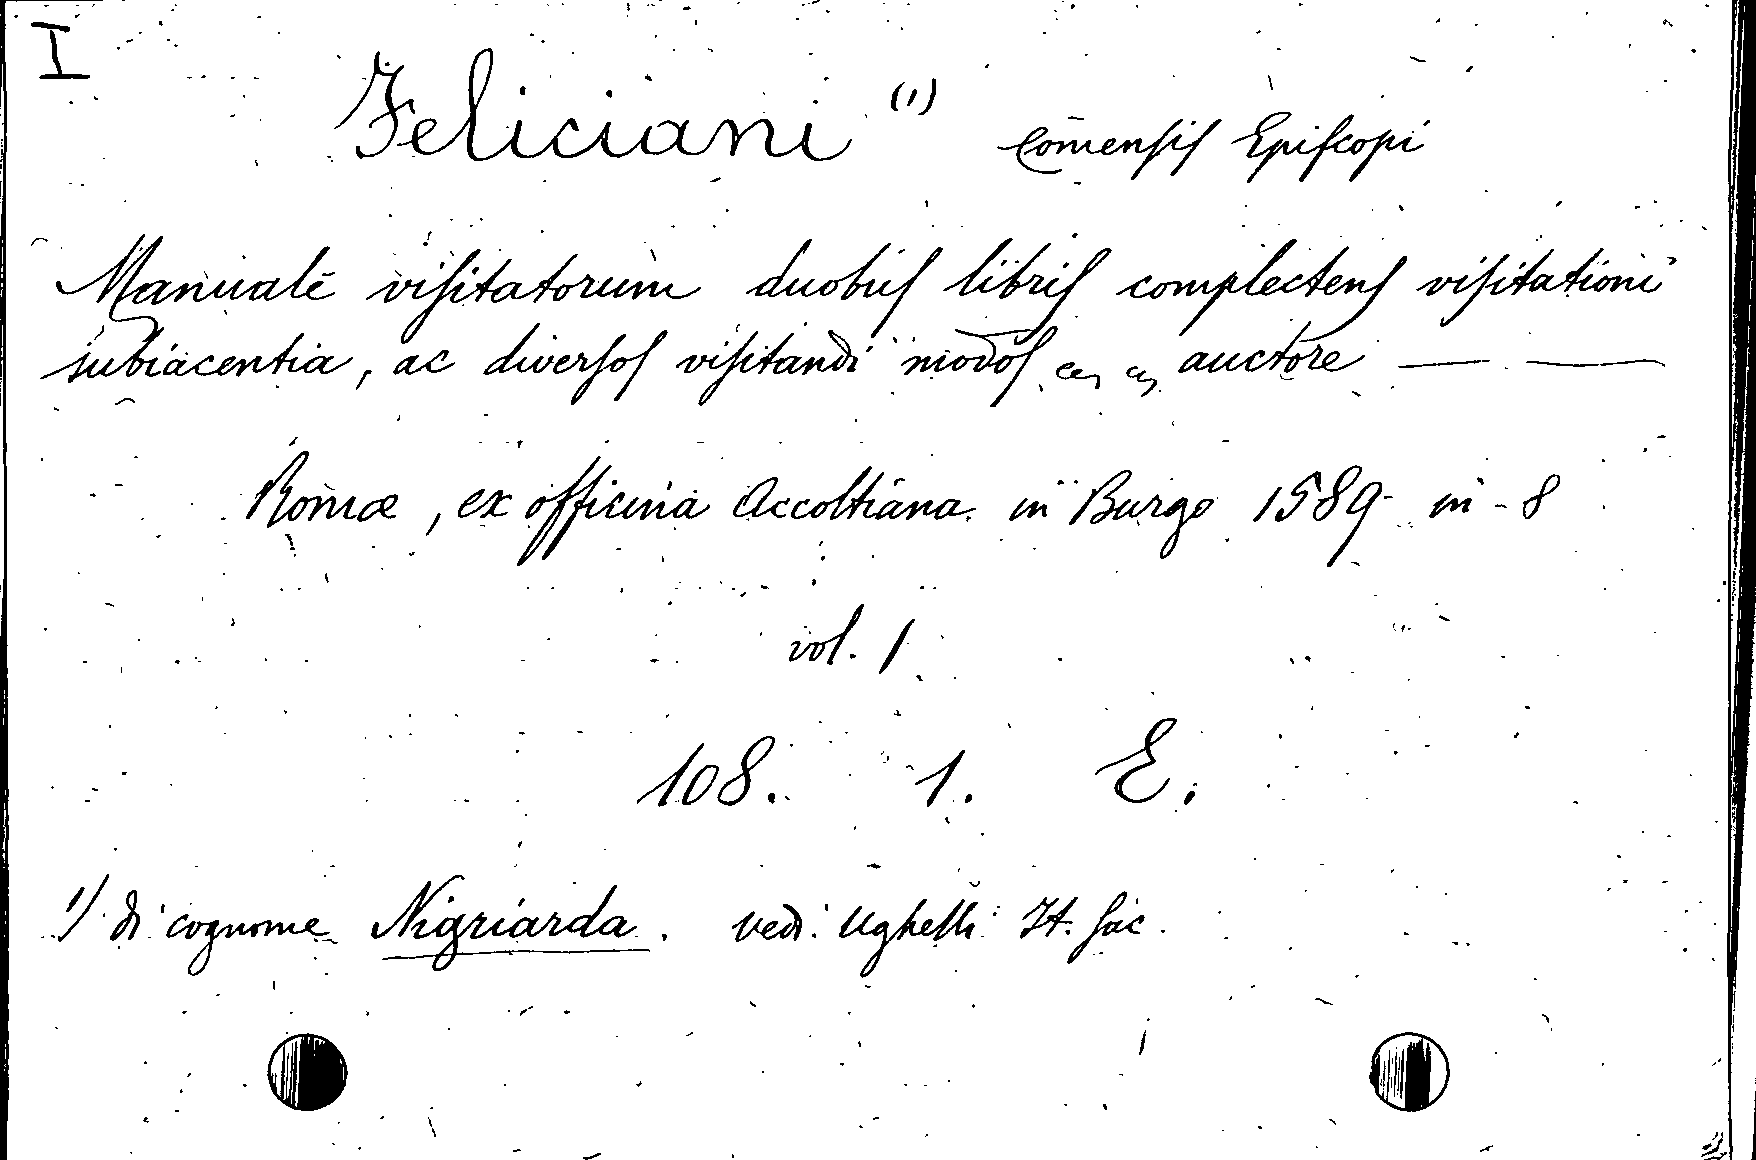 I
Feliciani (1) Com̄ensis Episcopi
Manuale visitatorum duobus libris complectens visitationi
subiacentia, ac diversos visitandi modos auctore — —
Romæ, ex officina Accoltiana in Burgo 1589 in-8
vol. 1
108. 1. E.
1) di cognome Nigriarda. vedi Ughelli It. sac.